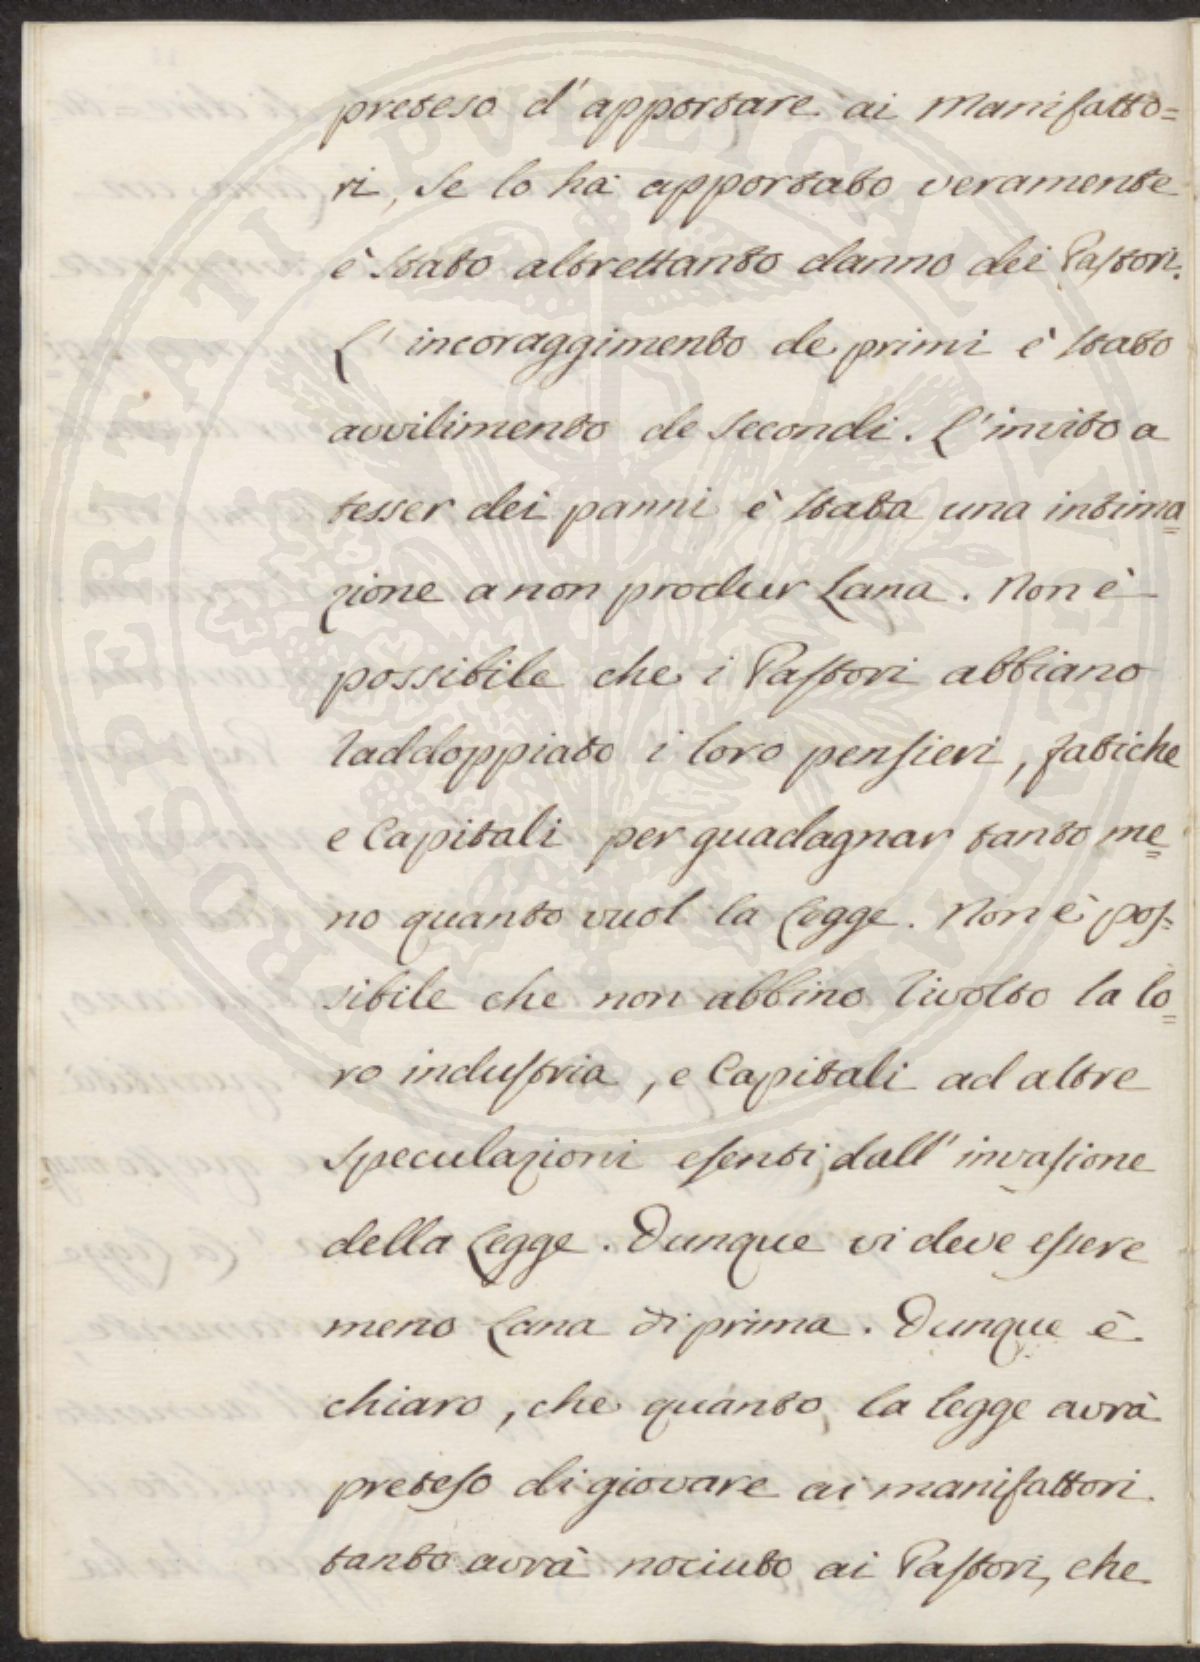 preteso d'apportare ai Manifatto=
ri, Se lo ha apportato veramente
è stato altrettanto danno dei Pastori.
L'incoraggimento de primi è stato
avvilimento de Secondi. L'invito a
tesser dei panni è stata una intima=
zione a non produr Lana. Non è
possibile che i Pastori abbiano
raddoppiato i loro pensieri, fatiche
e Capitali per guadagnar tanto me=
no quanto vuol la Legge. Non è pos=
sibile che non abbino rivolto la lo=
ro industria, e Capitali ad altre
speculazioni esenti dall'invasione
della Legge. Dunque vi deve essere
meno Lana di prima. Dunque è
chiaro, che quanto, la legge avrà
preteso di giovare ai manifattori
tanto avrà nociuto ai Pastori, che
PROSPERITATI PVBLICAE AVGENDAE